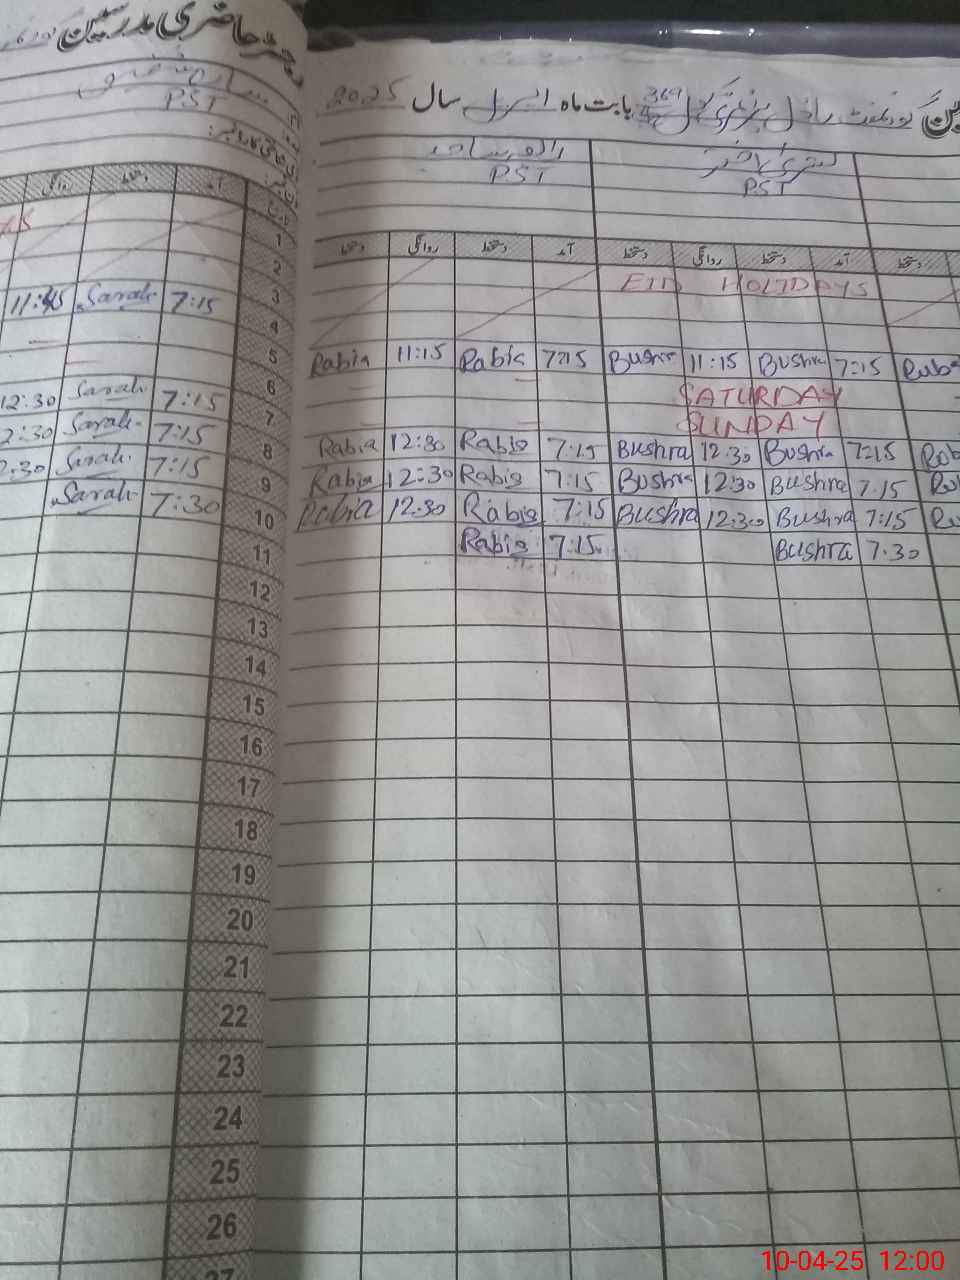 رجسٹر حاضری مدرسین
PST
گورنمنٹ گرلز پرائمری سکول 369 بابت ماہ اپریل سال 2025
PST
PST
آمد دستخط روانگی
آمد دستخط روانگی دستخط آمد دستخط روانگی دستخط
دستخط
1
2
EID HOLIDAYS
3
11:45 Sarah 7:15
4
5
Rabia 11:15 Rabia 7:15 Bushra 11:15 Bushra 7:15
6
SATURDAY
12:30 Sarah 7:15
7
SUNDAY
2:30 Sarah 7:15
8
Rabia 12:30 Rabia 7:15 Bushra 12:30 Bushra 7:15
2:30 Sarah 7:15
9
Rabia 12:30 Rabia 7:15 Bushra 12:30 Bushra 7:15
Sarah 7:30
10
Rabia 12:30 Rabia 7:15 Bushra 12:30 Bushra 7:15
11
Rabia 7:15 Bushra 7:30
12
13
14
15
16
17
18
19
20
21
22
23
24
25
26
27
10-04-25 12:00